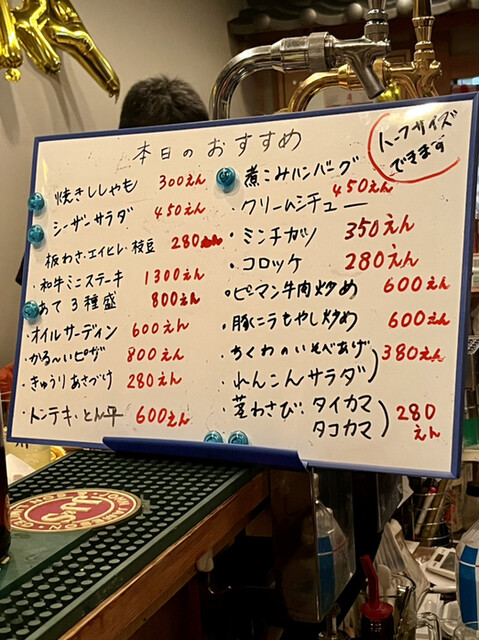 本日のおすすめ
ハーフサイズ
できます
焼きししゃも 300えん
シーザーサラダ 450えん
板わさ・エイヒレ・枝豆 280えん
・和牛ミニステーキ 1300えん
あて3種盛 800えん
・オイルサーディン 600えん
・かる〜いピザ 800えん
・きゅうりあさづけ 280えん
・トンテキ・とん平 600えん
煮こみハンバーグ
450えん
・クリームシチュー
・ミンチカツ 350えん
・コロッケ 280えん
・ピーマン牛肉炒め 600えん
・豚ニラもやし炒め 600えん
・ちくわのいそべあげ
・れんこんサラダ 380えん
・茎わさび・タイカマ
タコカマ 280
えん